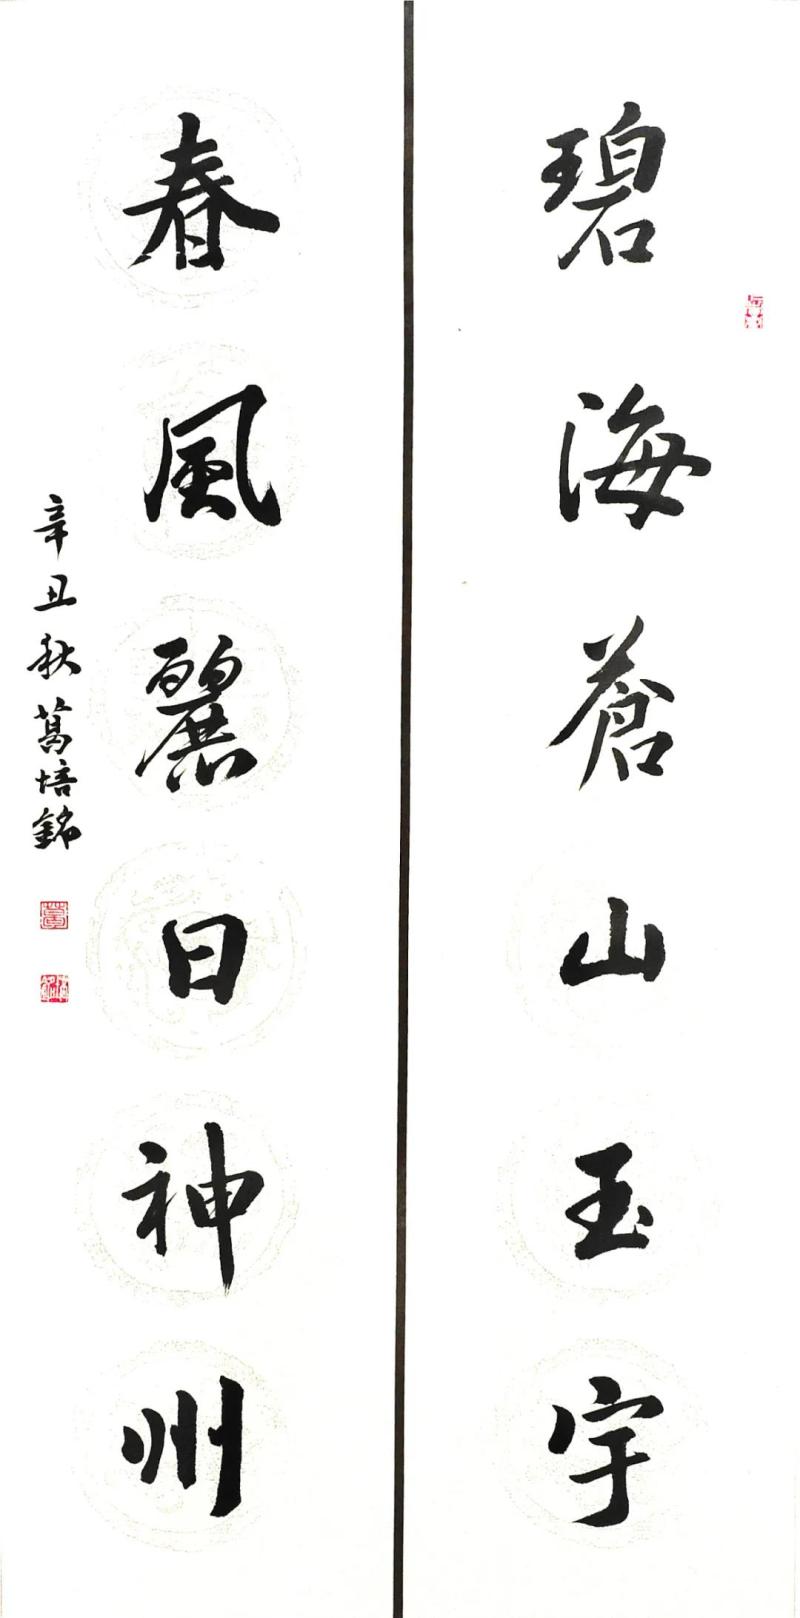 碧海蒼山玉宇
春風麗日神州
辛丑秋葛培銘